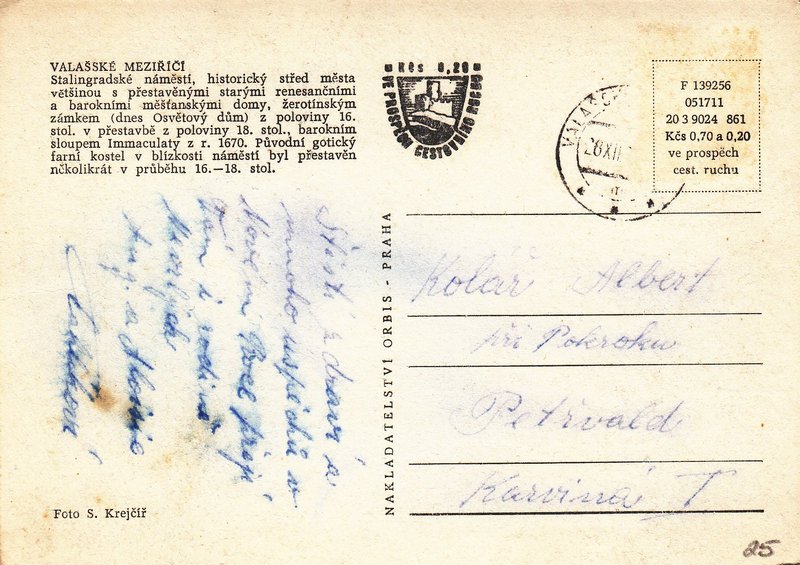 VALAŠSKÉ MEZIŘÍČÍ
Stalingradské náměstí, historický střed města
většinou s přestavěnými starými renesančními
a barokními měšťanskými domy, žerotínským
zámkem (dnes Osvětový dům) z poloviny 16.
stol. v přestavbě z poloviny 18. stol., barokním
sloupem Immaculaty z r. 1670. Původní gotický
farní kostel v blízkosti náměstí byl přestavěn
několikrát v průběhu 16.—18. stol.
Kčs 0,20
VE PROSPĚCH CESTOVNÍHO RUCHU
F 139256
051711
20 3 9024 861
Kčs 0,70 a 0,20
ve prospěch
cest. ruchu
28 XII
Štěstí zdraví a
mnoho úspěchů v
Novém Roce přejí
i rodina
NAKLADATELSTVÍ ORBIS - PRAHA
Kolář Albert
při Pokroku
Petřvald
Karviná I
Foto S. Krejčíř
25